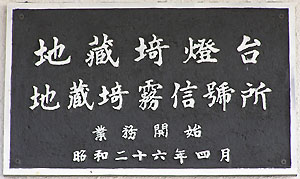 地藏埼燈台
地藏埼霧信號所
業務開始
昭和二十六年四月